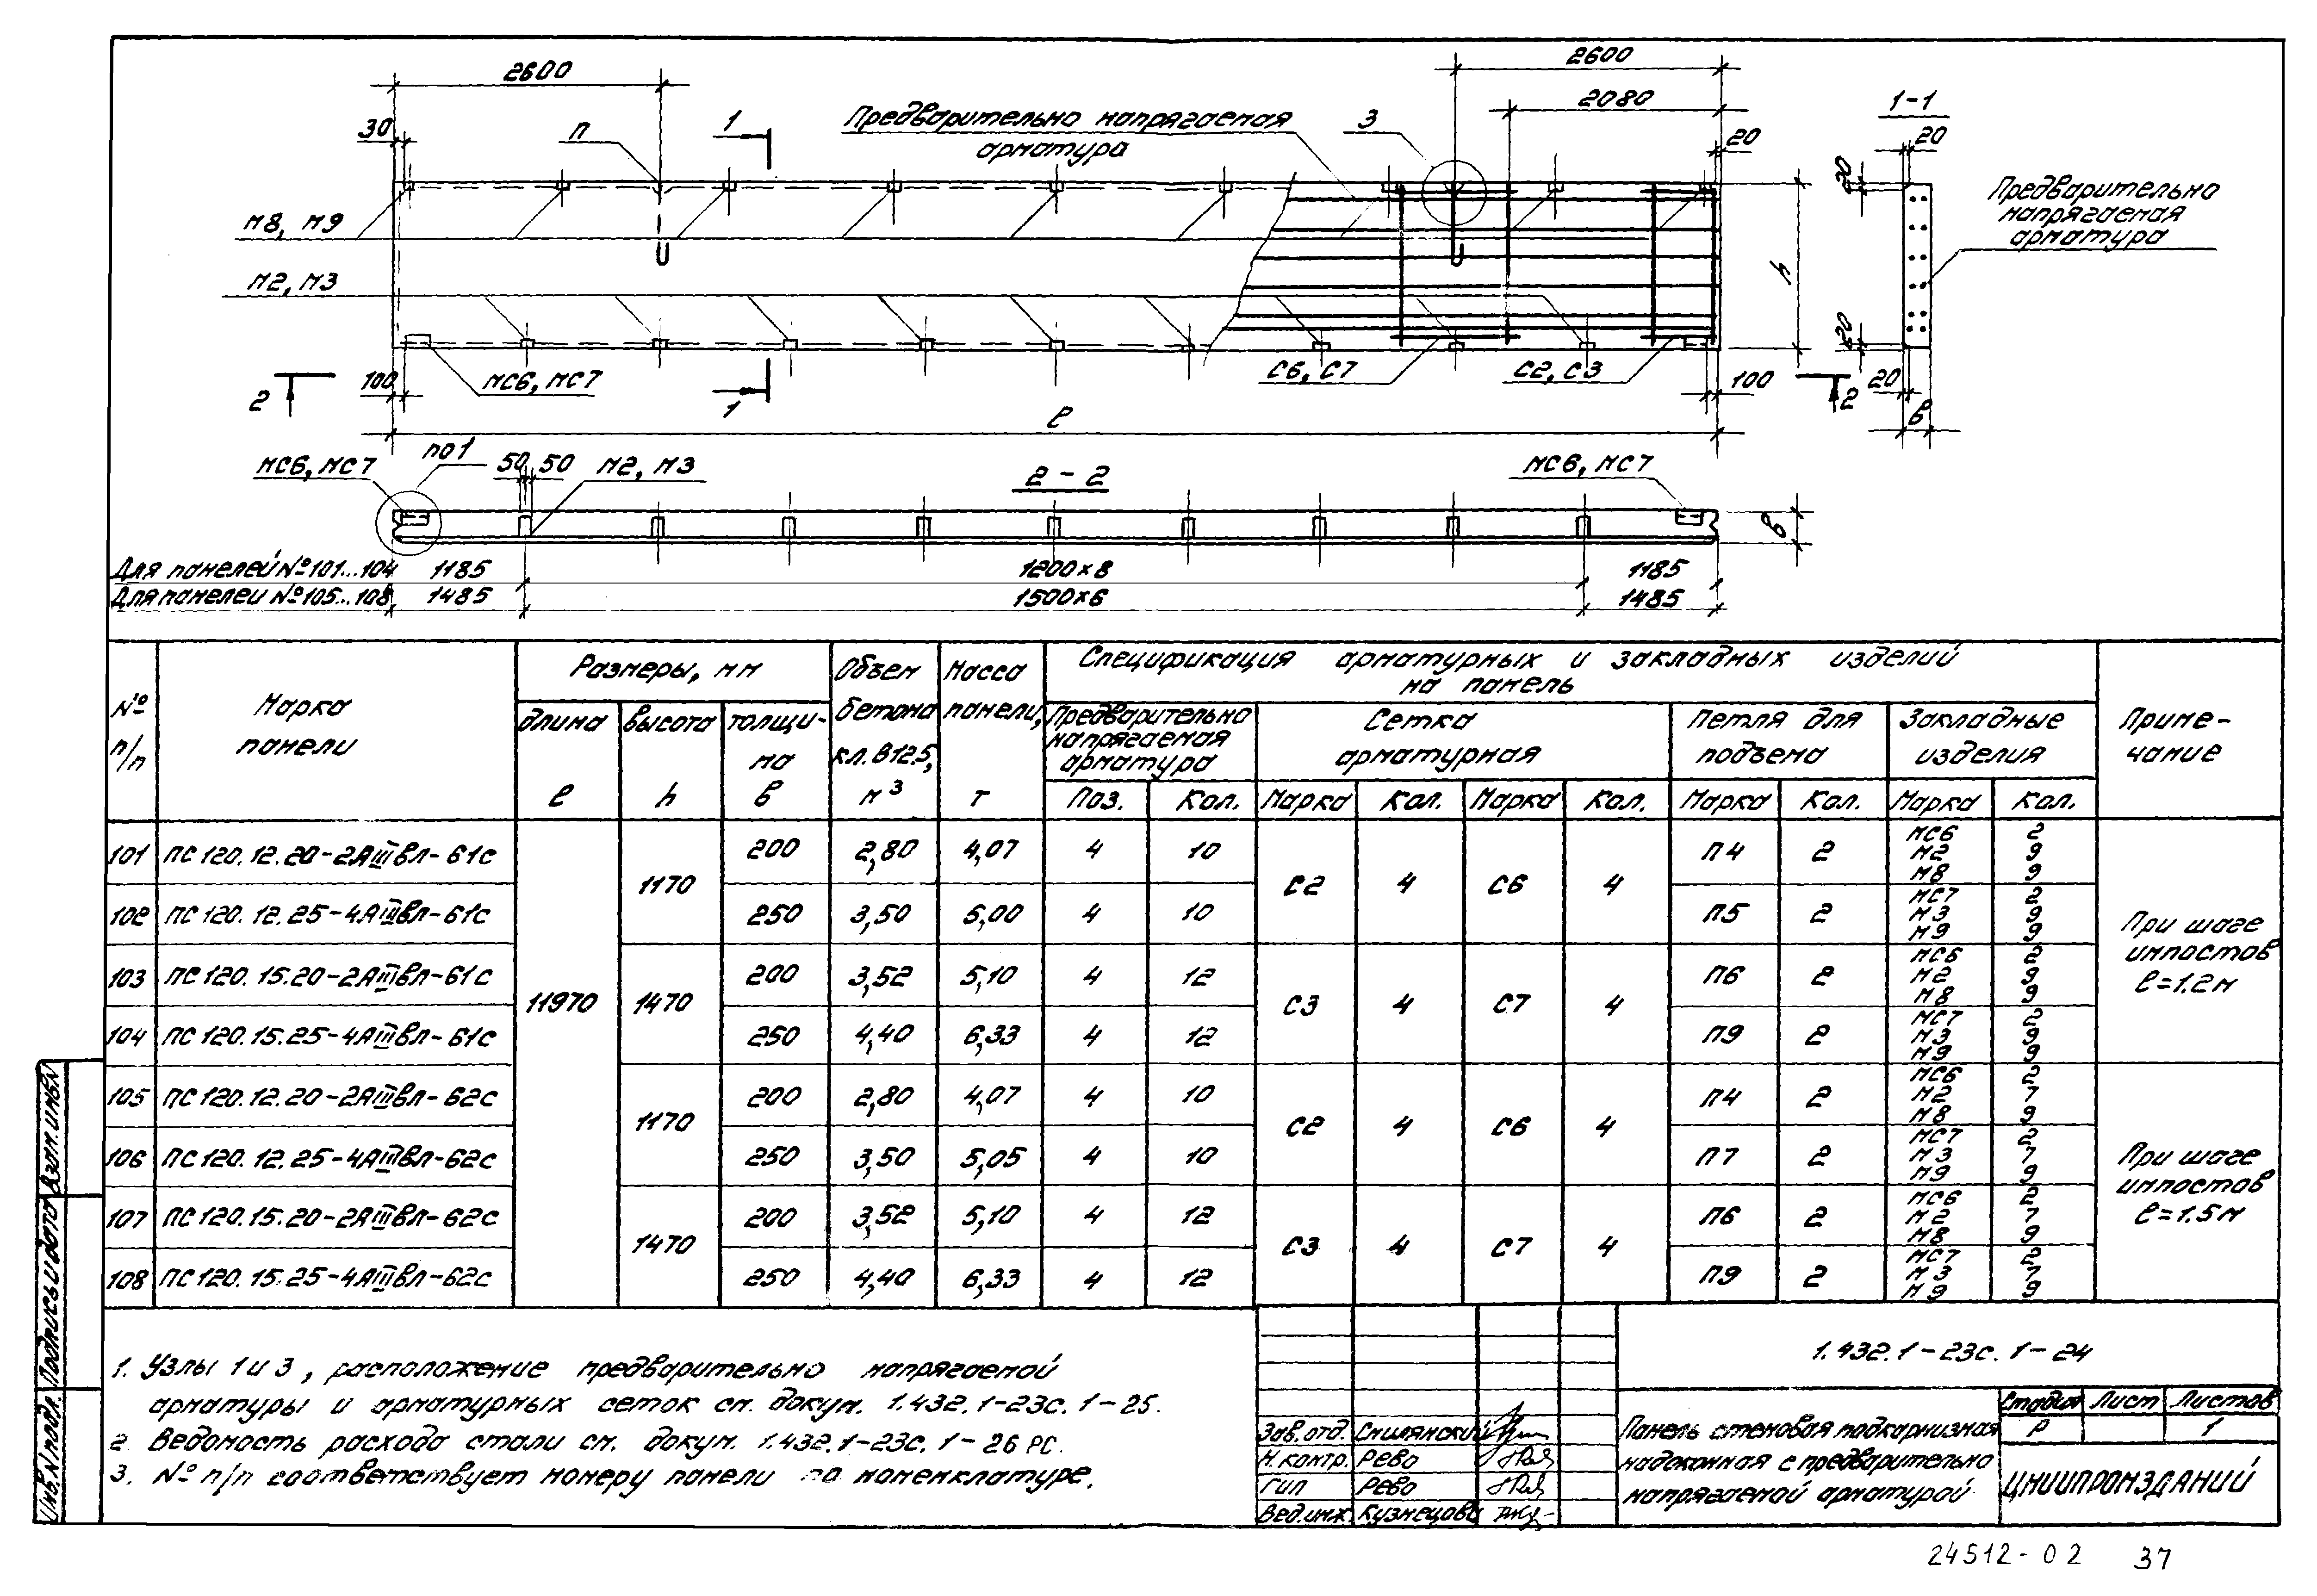 2600
2600
2080
1-1
30
П
1
Предварительно напрягаемая
арматура
3
20
20
20
Предварительно
напрягаемая
арматура
М8, М9
М2, М3
h
МС6, МС7
С6, С7
С2, С3
100
100
20
20
2
1
2
ℓ
в
МС6, МС7
по 1
50 50
М2, М3
2 - 2
МС6, МС7
в
Для панелей №101...104 1185 1200×8 1185
Для панелей №105...108 1485 1500×6 1485
№ п/п
Марка панели
Размеры, мм
длина ℓ
высота h
толщина в
Объем бетона кл. В12.5, м³
Масса панели, т
Спецификация арматурных и закладных изделий
на панель
Предварительно напрягаемая арматура
Сетка арматурная
Петля для подъема
Закладные изделия
Примечание
Поз. Кол. Марка Кол. Марка Кол. Марка Кол. Марка Кол.
101 ПС 120.12.20-2АIIIвл-61с 11970 1170 200 2,80 4,07 4 10 С2 4 С6 4 П4 2 МС6 2 М2 9 М8 9 При шаге импостов ℓ=1.2м
102 ПС 120.12.25-4АIIIвл-61с 250 3,50 5,00 4 10 П5 2 МС7 2 М3 9 М9 9
103 ПС 120.15.20-2АIIIвл-61с 1470 200 3,52 5,10 4 12 С3 4 С7 4 П6 2 МС6 2 М2 9 М8 9
104 ПС 120.15.25-4АIIIвл-61с 250 4,40 6,33 4 12 П9 2 МС7 2 М3 9 М9 9
105 ПС 120.12.20-2АIIIвл-62с 1170 200 2,80 4,07 4 10 С2 4 С6 4 П4 2 МС6 2 М2 7 М8 9 При шаге импостов ℓ=1.5м
106 ПС 120.12.25-4АIIIвл-62с 250 3,50 5,05 4 10 П7 2 МС7 2 М3 7 М9 9
107 ПС 120.15.20-2АIIIвл-62с 1470 200 3,52 5,10 4 12 С3 4 С7 4 П6 2 МС6 2 М2 7 М8 9
108 ПС 120.15.25-4АIIIвл-62с 250 4,40 6,33 4 12 П9 2 МС7 2 М3 7 М9 9
1. Узлы 1 и 3, расположение предварительно напрягаемой
арматуры и арматурных сеток см. докум. 1.432.1-23с.1-25.
2. Ведомость расхода стали см. докум. 1.432.1-23с.1-26 РС.
3. № п/п соответствует номеру панели по номенклатуре.
1.432.1-23с.1-24
Зав.отд. Смилянский
Н.контр. Рево
ГИП Рево
Вед.инж. Кузнецова
Панель стеновая подкарнизная
надоконная с предварительно
напрягаемой арматурой
Стадия Лист Листов
Р 1
ЦНИИПРОМЗДАНИЙ
Инв.N подл. Подпись и дата Взам.инв.N
24512-02 37